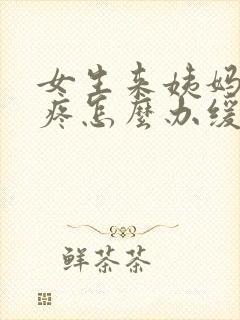 女生来姨妈
疼怎麼办缓
鲜茶茶